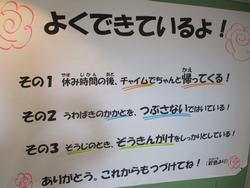 よくできているよ！
その1 休み時間の後、チャイムでちゃんと帰ってくる！
その2 うわばきのかかとを、つぶさないではいている！
その3 そうじのとき、ぞうきんがけをしっかりしている！
ありがとう。これからもつづけてね！